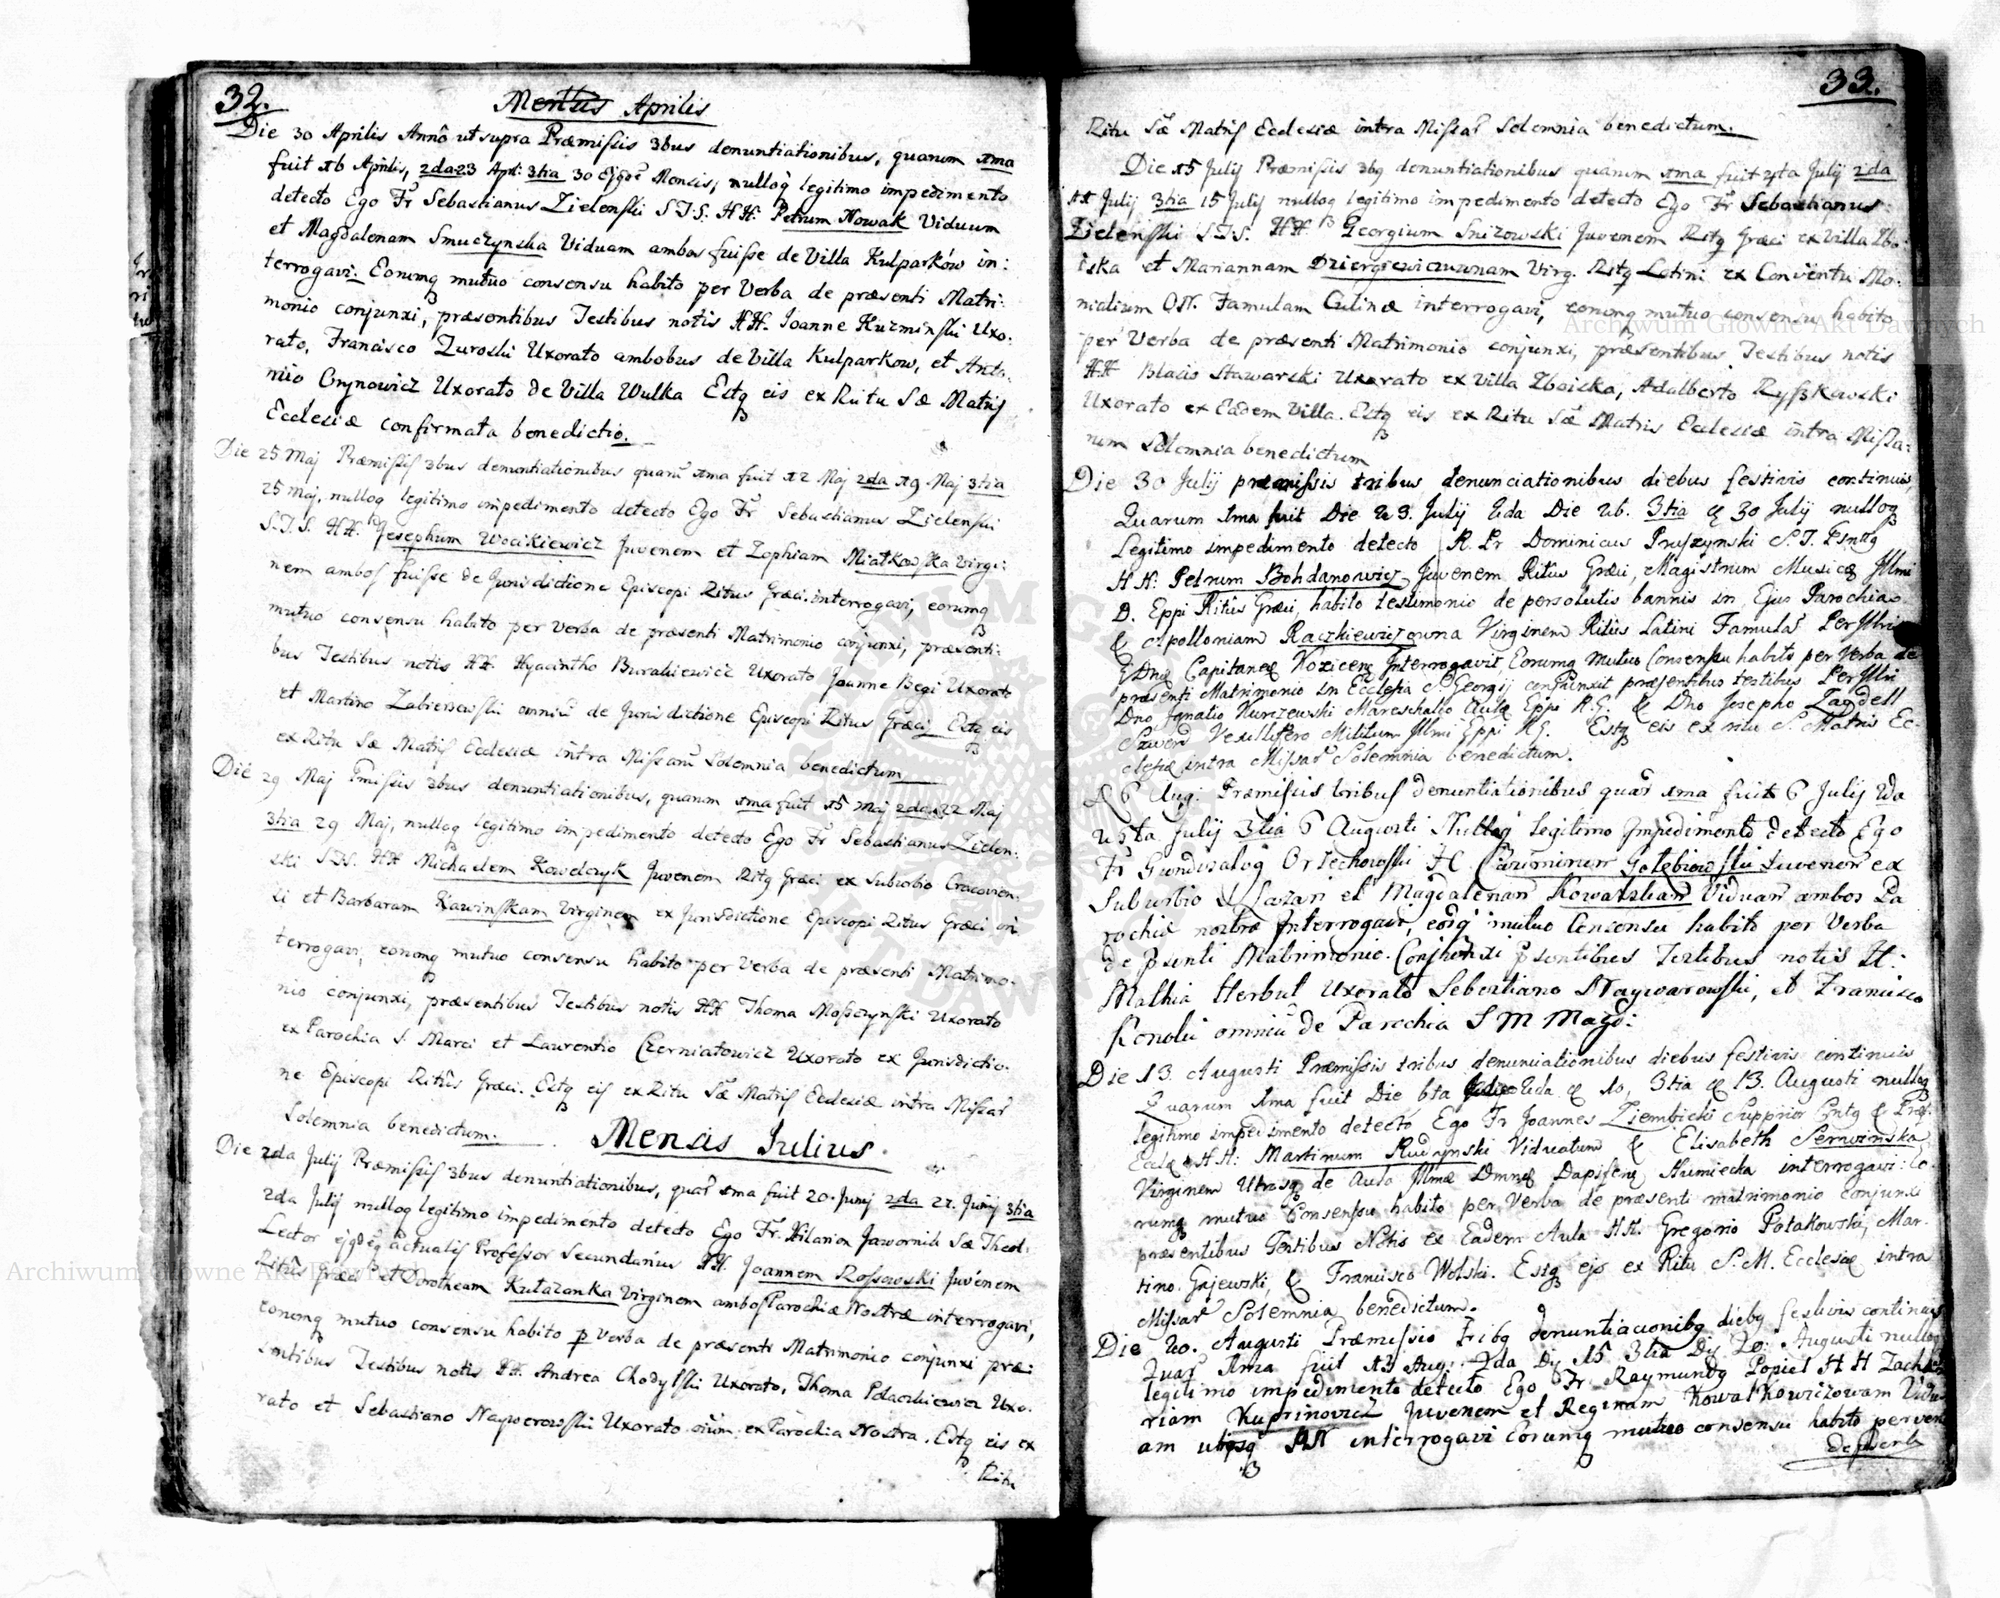 32.
Mensis Aprilis
Die 30 Aprilis Anno ut supra Præmissis 3bus denuntiationibus, quarum 1ma
fuit 16 Aprilis, 2da 23 Apl: 3tia 30 Ejqde Mensis, nulloq legitimo impedimento
detecto Ego Fr Sebastianus Zielenski S.T.S. HH: Petrum Nowak Viduum
et Magdalenam Smuczynska Viduam ambos fuisse de Villa Kulparków in:
terrogavi. Eorumq mutuo consensu habito per Verba de præsenti Matri:
monio conjunxi, præsentibus Testibus notis HH. Joanne Kuzminski Uxo:
rato, Francisco Zuroski Uxorato ambobus de Villa Kulparkow, et Anto:
nio Crynowicz Uxorato de Villa Wulka Estq eis ex Ritu Sæ Matris
Ecclesiæ confirmata benedictio.
Die 25 Maj Præmissis 3bus denuntiationibus quarū 1ma fuit 12 Maj 2da 19 Maj 3tia
25 Maj, nulloq legitimo impedimento detecto Ego Fr Sebastianus Zielenski
S.T.S. HH. Josephum Wocikiewicz Juvenem et Zophiam Miatkowska Virgi:
nem ambos fuisse de Jurisdictione Episcopi Ritus Græci interrogavi, eorumq
mutuo consensu habito per Verba de præsenti Matrimonio conjunxi, præsenti:
bus Testibus notis HH. Hyacintho Burakiewicz Uxorato Joanne Begi Uxorato
et Martino Zabierzewski omniū de Jurisdictione Episcopi Ritus Græci Estq eis
ex Ritu Sæ Matris Ecclesiæ intra Missarū Solemnia benedictum
Die 29 Maj Pmissis 3bus denuntiationibus, quarum 1ma fuit 15 Maj 2da 22 Maj
3tia 29 Maj, nulloq legitimo impedimento detecto Ego Fr Sebastianus Zielen:
ski S.T.S. HH Michaelem Kowalczyk Juvenem Ritq Græci ex Suburbio Cracovien:
si et Barbaram Kawinskam Virginem ex Jurisdictione Episcopi Ritus Græci in:
terrogavi, eorumq mutuo consensu habito per Verba de præsenti Matrimo:
nio conjunxi, præsentibus Testibus notis HH Thoma Moszczynski Uxorato
ex Parochia S. Marci et Laurentio Czerniatowicz Uxorato ex Jurisdictio:
ne Episcopi Ritûs Græci. Estq eis ex Ritu Sæ Matris Ecclesiæ intra Missar
Solemnia benedictum.
Mensis Julius.
Die 2da Julij Præmissis 3bus denuntiationibus, quar 1ma fuit 20 Junij 2da 27. Junij 3tia
2da Julij nulloq legitimo impedimento detecto Ego Fr. Hilarion Jawornik Sæ Theol:
Lector ejqdeq actualis Professor Secundarius HH. Joannem Rossowski Juvenem
Ritûs Græci et Dorotheam Kulazanka Virginem ambos Parochiæ Nostræ interrogavi,
eorumq mutuo consensu habito p Verba de præsenti Matrimonio conjunxi præ:
sentibus Testibus notis HH. Andrea Chodylski Uxorato, Thoma Polaczkiewicz Uxo:
rato et Sebastiano Naywerowski Uxorato oium ex Parochia Nostra. Estq eis ex
Ritu
33.
Ritu Sæ Matris Ecclesiæ intra Missar Solemnia benedictum.
Die 15 Julij Præmissis 3bq denuntiationibus quarum 1ma fuit 4ta Julij 2da
11 Julij 3tia 15 Julij nulloq legitimo impedimento detecto Ego Fr Sebastianus
Zielenski S.T.S. HH Georgium Snizowski Juvenem Ritq Græci ex Villa Zbo:
iska et Mariannam Dziergiewiczuwnam Virg. Ritq Latini ex Conventu Mo:
nialium Famulam Culinæ interrogavi, eorumq mutuo consensu habito
per Verba de præsenti Matrimonio conjunxi, præsentibus Testibus notis
HH Blasio Stawarski Uxorato ex Villa Zboiska, Adalberto Ryszkowski
Uxorato ex Eadem Villa. Estq eis ex Ritu Sæ Matris Ecclesiæ intra Missa:
rum Solemnia benedictum
Die 30 Julij præmissis tribus denunciationibus diebus festivis continuis,
Quarum 1ma fuit Die 23. Julij 2da Die 26. 3tia 30 Julij nulloq
Legitimo impedimento detecto R. Pr Dominicus Pruszynski S.T.
HH: Petrum Bohdanowicz Juvenem Ritûs Græci, Magistrum Musicæ Illmi
D. Eppi Ritûs Græci, habito testimonio de persolutis bannis in Ejus Parochia
& Apolloniam Raczkiewiczowna Virginem Ritûs Latini Famulā PerIllris
Dnæ Capitaneæ Interrogavit Eorumq Mutuo Consensu habito per Verba de
præsenti Matrimonio in Ecclesia S. Georgij conjunxit præsentibus testibus PerIllri
Dno Ignatio Kurczewski Mareschallo Aulæ Eppi R.G. & Dno Josepho Zagdell
Vexillifero Militum Illmi Eppi R.G. Estq eis ex ritu S. Matris Ec:
clesiæ intra Missar Solemnia benedictum.
D 6 Aug: Præmissis tribus denuntiationibus quar 1ma fuit 6 Julij 2da
25ta Julij 3tia 6 Augusti Nulloq legitimo Impedimento detecto Ego
Fr Gundisalvq Orzechowski H. Cazimirum Gołębiowski Juvenem ex
Suburbio Lazari et Magdalenam Kowalskam Viduam ambos Pa
rochiæ nostræ Interrogavi, eorq mutuo Consensu habito per Verba
de psenti Matrimonio Conjunxi psentibus Testibus notis H:
Mathia Herbut Uxorato Sebestiano Naywarowski, et Francisco
Konolu omniū de Parochia S M Magd:
Die 13. Augusti Præmissis tribus denunciationibus diebus festivis continuis
Quarum 1ma fuit Die 6ta 2da 10, 3tia 13. Augusti nulloq
legitimo impedimento detecto Ego Fr Joannes Ziembicki Supprior
HH: Martinum Rudynski Viduatum & Elisabeth Serwinska
Virginem Utrosq de Aula Illmæ Dmnæ Dapiferæ Humiecka interrogavi: Eo:
rumq mutuo Consensu habito per Verba de præsenti matrimonio conjunxi
præsentibus Testibus Notis ex Eadem Aula HH. Gregorio Potakowski, Mar:
tino Gajewski, & Francisco Wolski. Estq ejs ex Ritu S.M. Ecclesiæ intra
Missar Solemnia benedictum.
Die 20. Augusti Præmissis Tribq denuntiacionibq diebq festivis continuis
Quar 1ma fuit 13 Aug: 2da Dij 15 3tia Dij 20: Augusti nulloq
legitimo impedimento detecto Ego Fr Raymundq Popiel HH Zach
riam Kuprinovich Juvenem et Reginam Kowalkowiczowam Vidu
am utqsq PN interrogavi Eorumq mutuo consensu habito per verb
de psenti
Archiwum Główne Akt Dawnych
Archiwum Główne Akt Dawnych